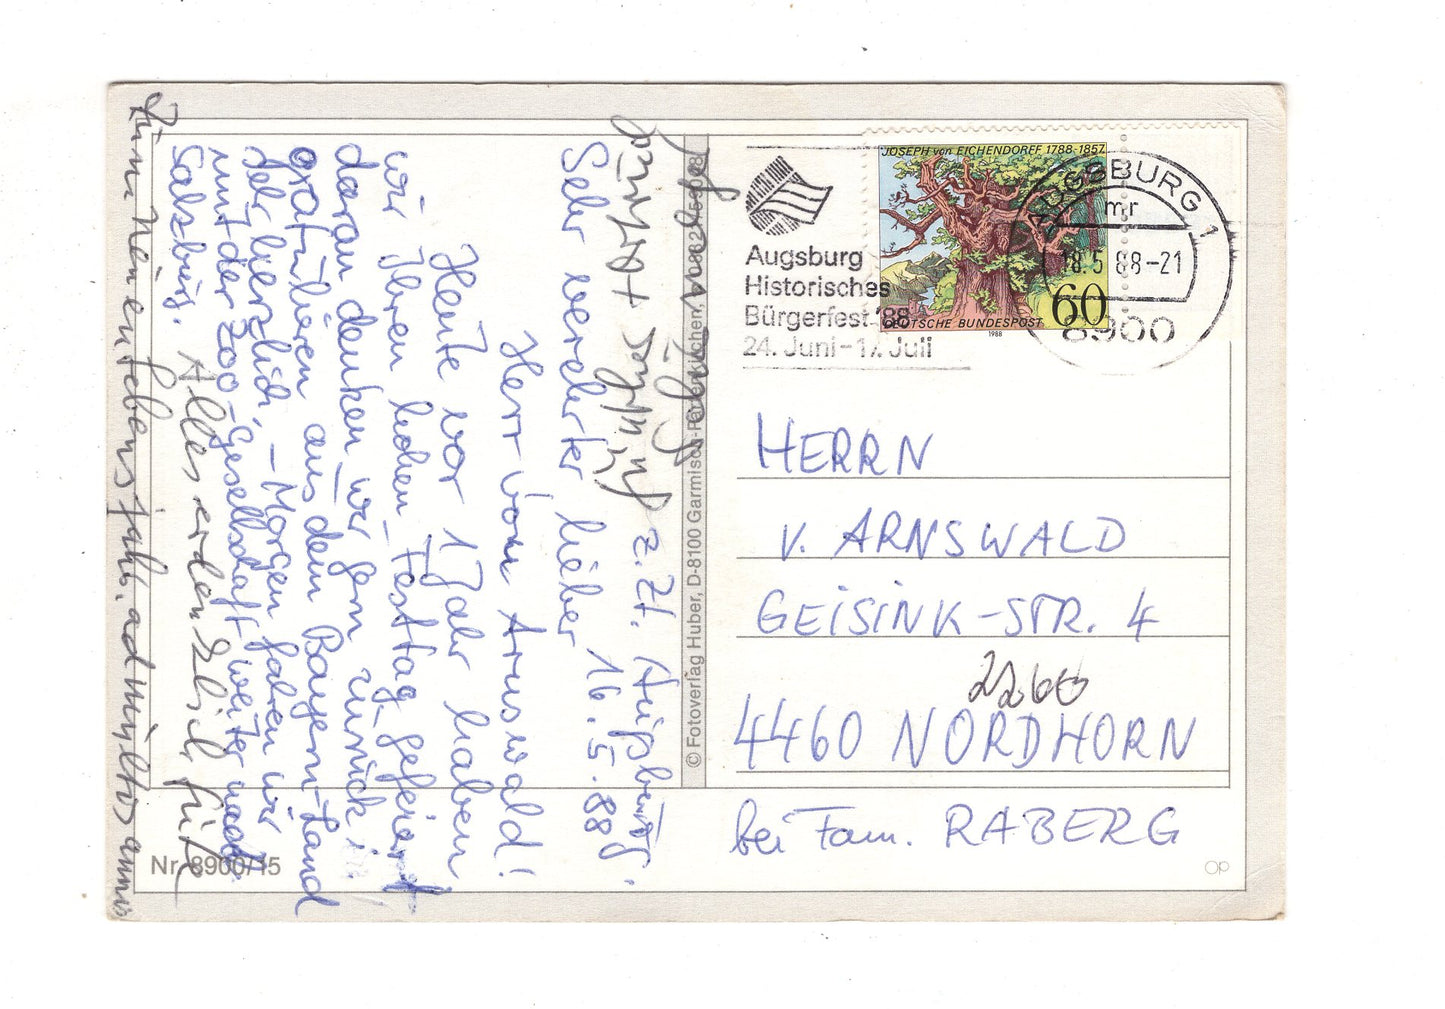 z. Zt. Augsburg.
16. 5. 88
Sehr verehrter lieber
Herr von Arnswald!
Heute vor 1 Jahr haben
wir Ihren hohen Festtag gefeiert
daran denken wir gern zurück
gratulieren aus dem Bayern-Land
sehr herzlich, – Morgen fahren wir
mit der Zoo-Gesellschaft weiter nach
Salzburg. Alles erdenklich
zum neuen Lebensjahr, ad multos annos
© Fotoverlag Huber, D-8100 Garmisch-Partenkirchen,
Nr. 8900/15
Augsburg
Historisches
Bürgerfest '88
24. Juni – 17. Juli
JOSEPH von EICHENDORFF 1788-1857
60
DEUTSCHE BUNDESPOST
1988
AUGSBURG 1
mr
18. 5 88-21
8900
HERRN
V. ARNSWALD
GEISINK-STR. 4
4460 NORDHORN
bei Fam. RABERG